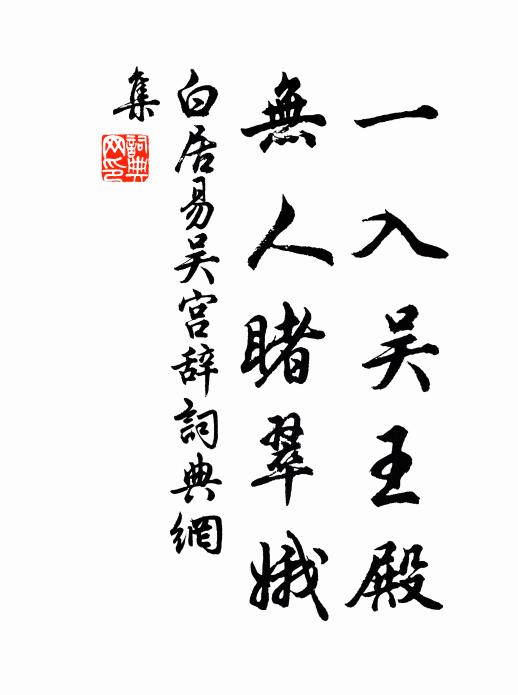 一入吴王殿
無人睹翠娥
白居易吴宫辞詞典網
集
詞典
网印